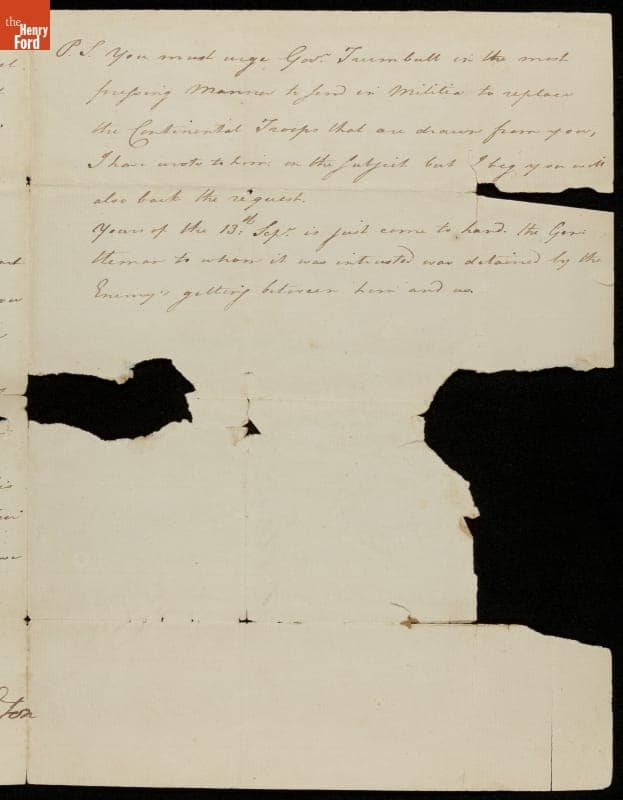 the
Henry
Ford
P.S. You must urge Govr. Trumbull in the most
pressing Manner to send in Militia to replace
the Continental Troops that are drawn from you,
I have wrote to him on the subject but I beg you will
also back the request.
Yours of the 13th. Sepr. is just come to hand. the Gen
tleman to whom it was intrusted was detained by the
Enemy's getting between him and us.
ton